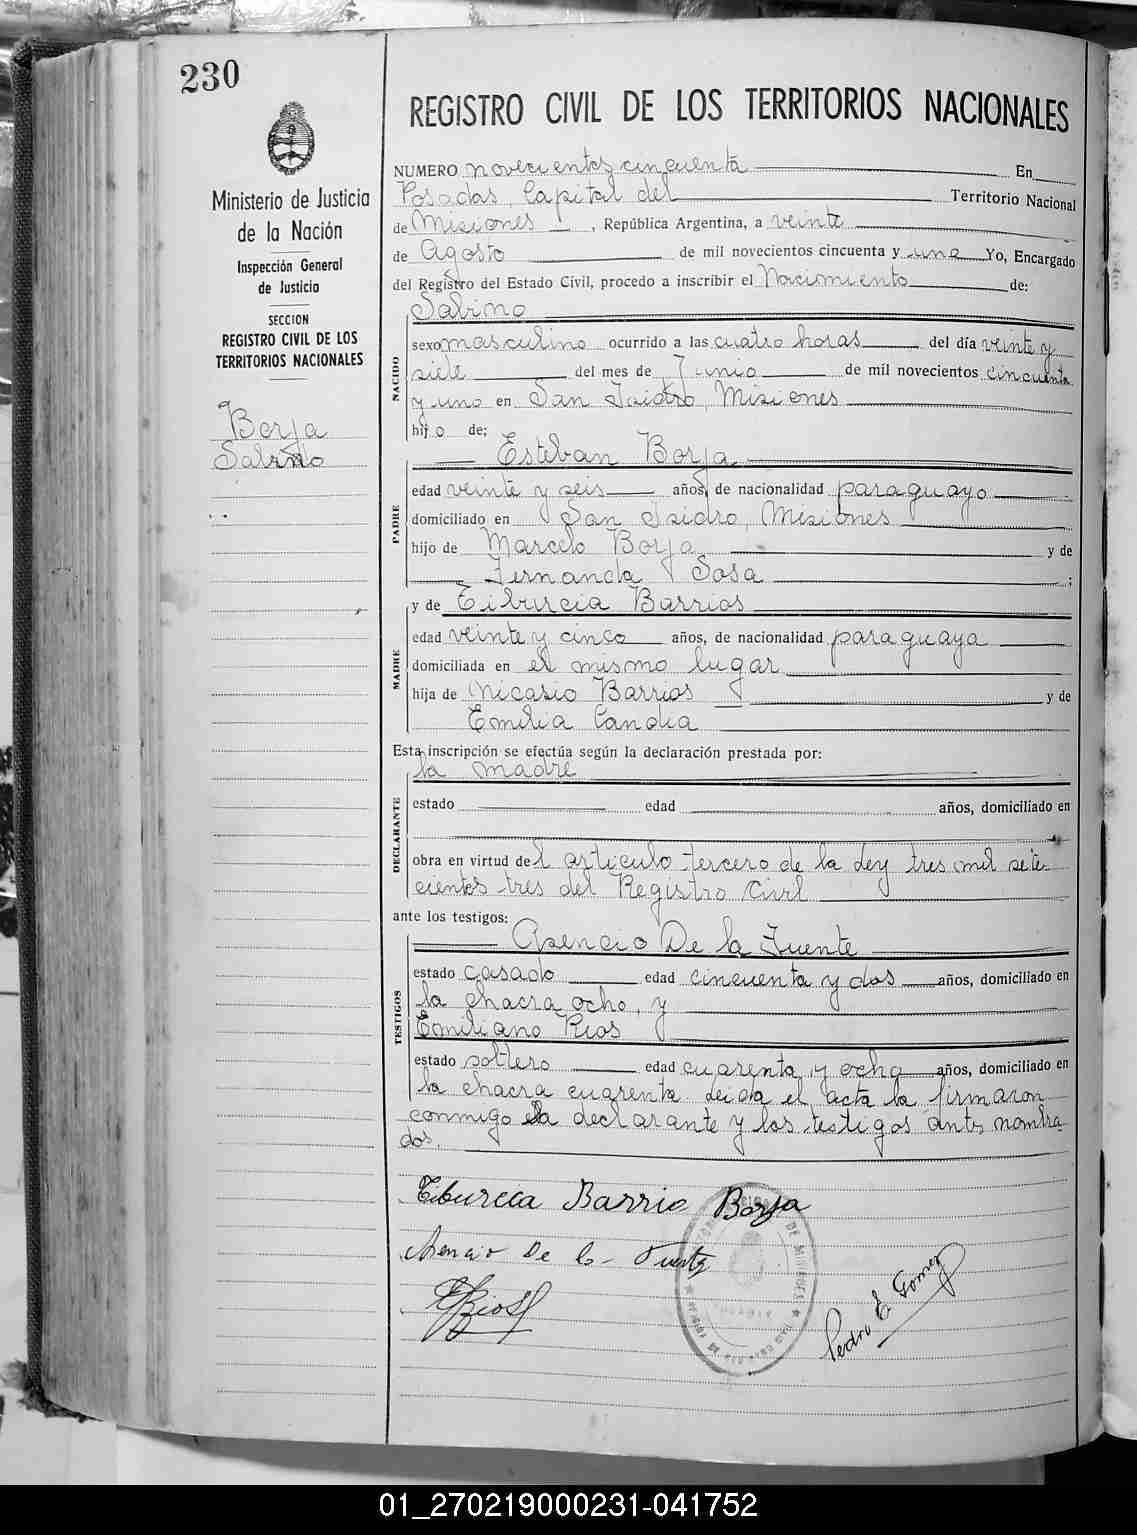 230
Ministerio de Justicia
de la Nación
Inspección General
de Justicia
SECCION
REGISTRO CIVIL DE LOS
TERRITORIOS NACIONALES
Borja
Sabino
REGISTRO CIVIL DE LOS TERRITORIOS NACIONALES
NUMERO novecientos cincuenta En
Posadas, Capital del Territorio Nacional
de Misiones, República Argentina, a veinte
de Agosto de mil novecientos cincuenta y uno Yo, Encargado
del Registro del Estado Civil, procedo a inscribir el Nacimiento de:
Sabino
NACIDO
sexo masculino ocurrido a las cuatro horas del día veinte y
siete del mes de Junio de mil novecientos cincuenta
y uno en San Isidro, Misiones
hijo de;
Esteban Borja
PADRE
edad veinte y seis años, de nacionalidad paraguayo
domiciliado en San Isidro, Misiones
hijo de Marcelo Borja y de
Fernanda Sosa ;
y de Tiburcia Barrios
MADRE
edad veinte y cinco años, de nacionalidad paraguaya
domiciliada en el mismo lugar
hija de Nicasio Barrios y de
Emilia Candia
Esta inscripción se efectúa según la declaración prestada por:
la madre
DECLARANTE
estado edad años, domiciliado en
obra en virtud del artículo tercero de la ley tres mil sete-
cientos tres del Registro Civil
ante los testigos:
Asencio De la Fuente
TESTIGOS
estado casado edad cincuenta y dos años, domiciliado en
la chacra ocho, y
Emiliano Rios
estado soltero edad cuarenta y ocho años, domiciliado en
la chacra cuarenta. Leida el acta la firmaron
conmigo la declarante y los testigos antes nombra-
dos.
Tiburcia Barrio Borja
Asencio De la Fuente
ERios
Pedro E Gomez
01_270219000231-041752